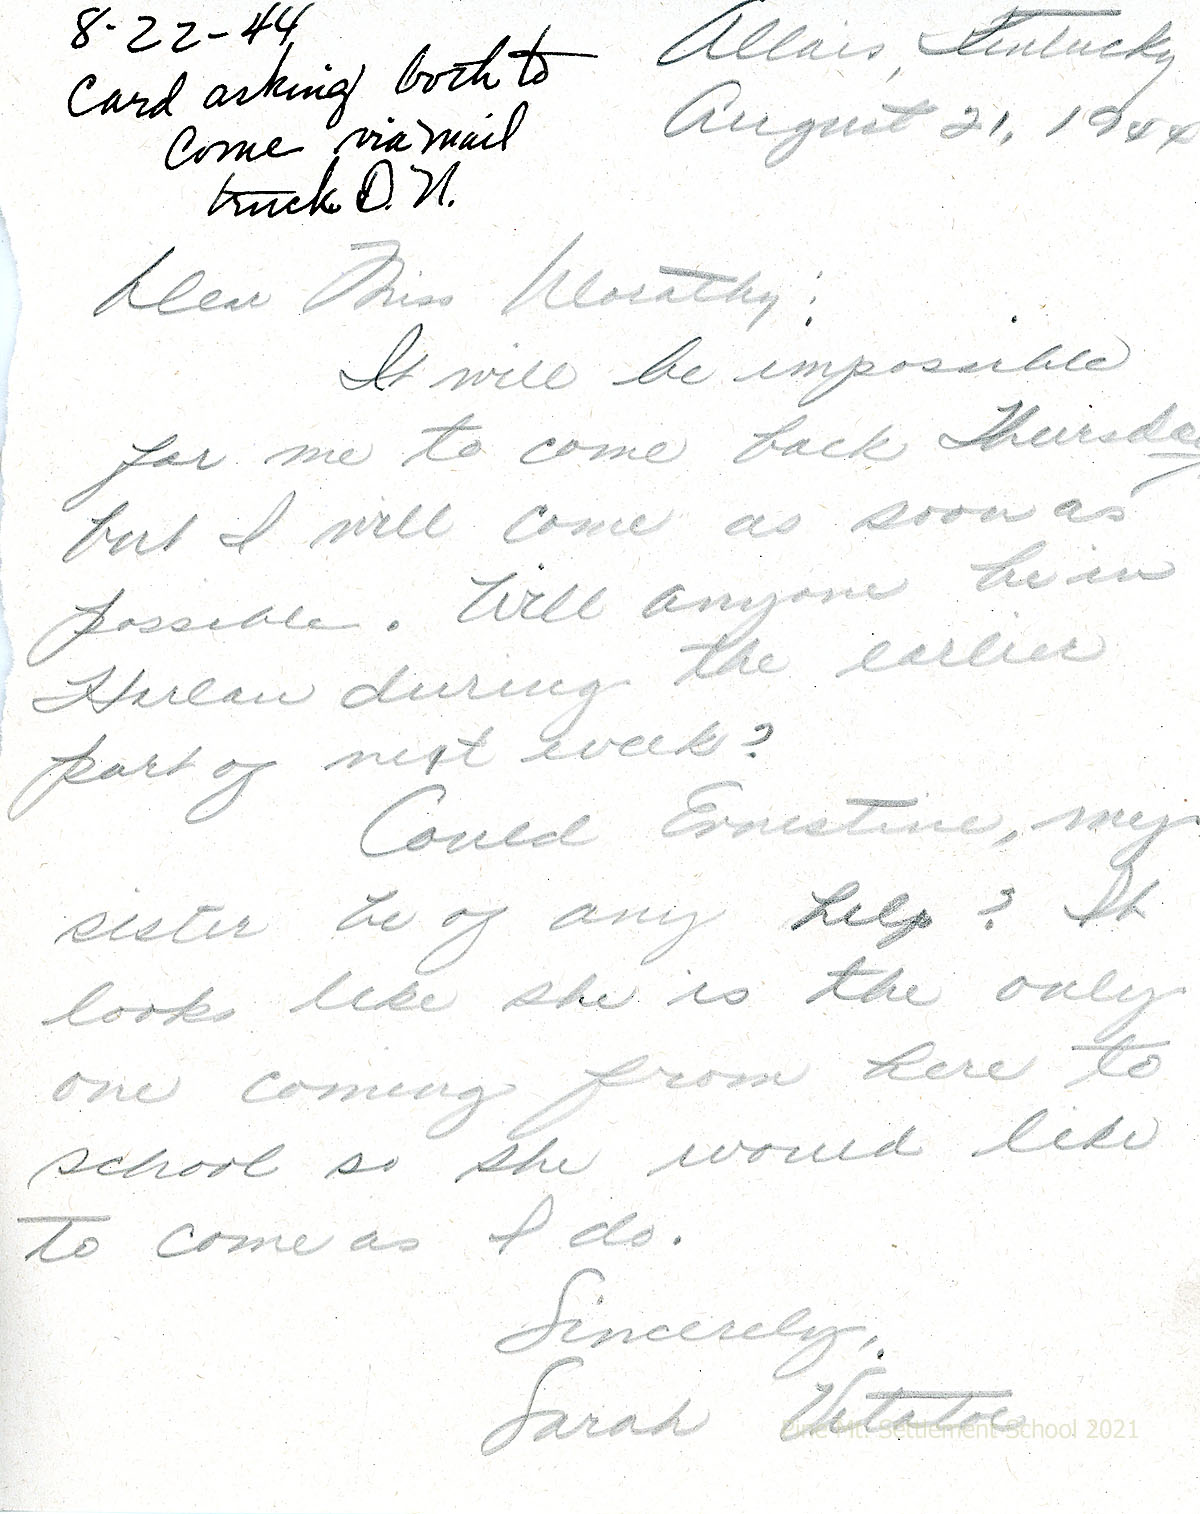 8-22-44
Card asking both to
come via mail
truck D. N.
Allais, Kentucky
August 21, 1944
Dear Miss Dorothy:
It will be impossible
for me to come back Thursday
but I will come as soon as
possible. Will anyone be in
Harlan during the earlier
part of next week?
Could Ernestine, my
sister be of any help? It
looks like she is the only
one coming from here to
school so she would like
to come as I do.
Sincerely,
Sarah
Pine Mt. Settlement School 2021